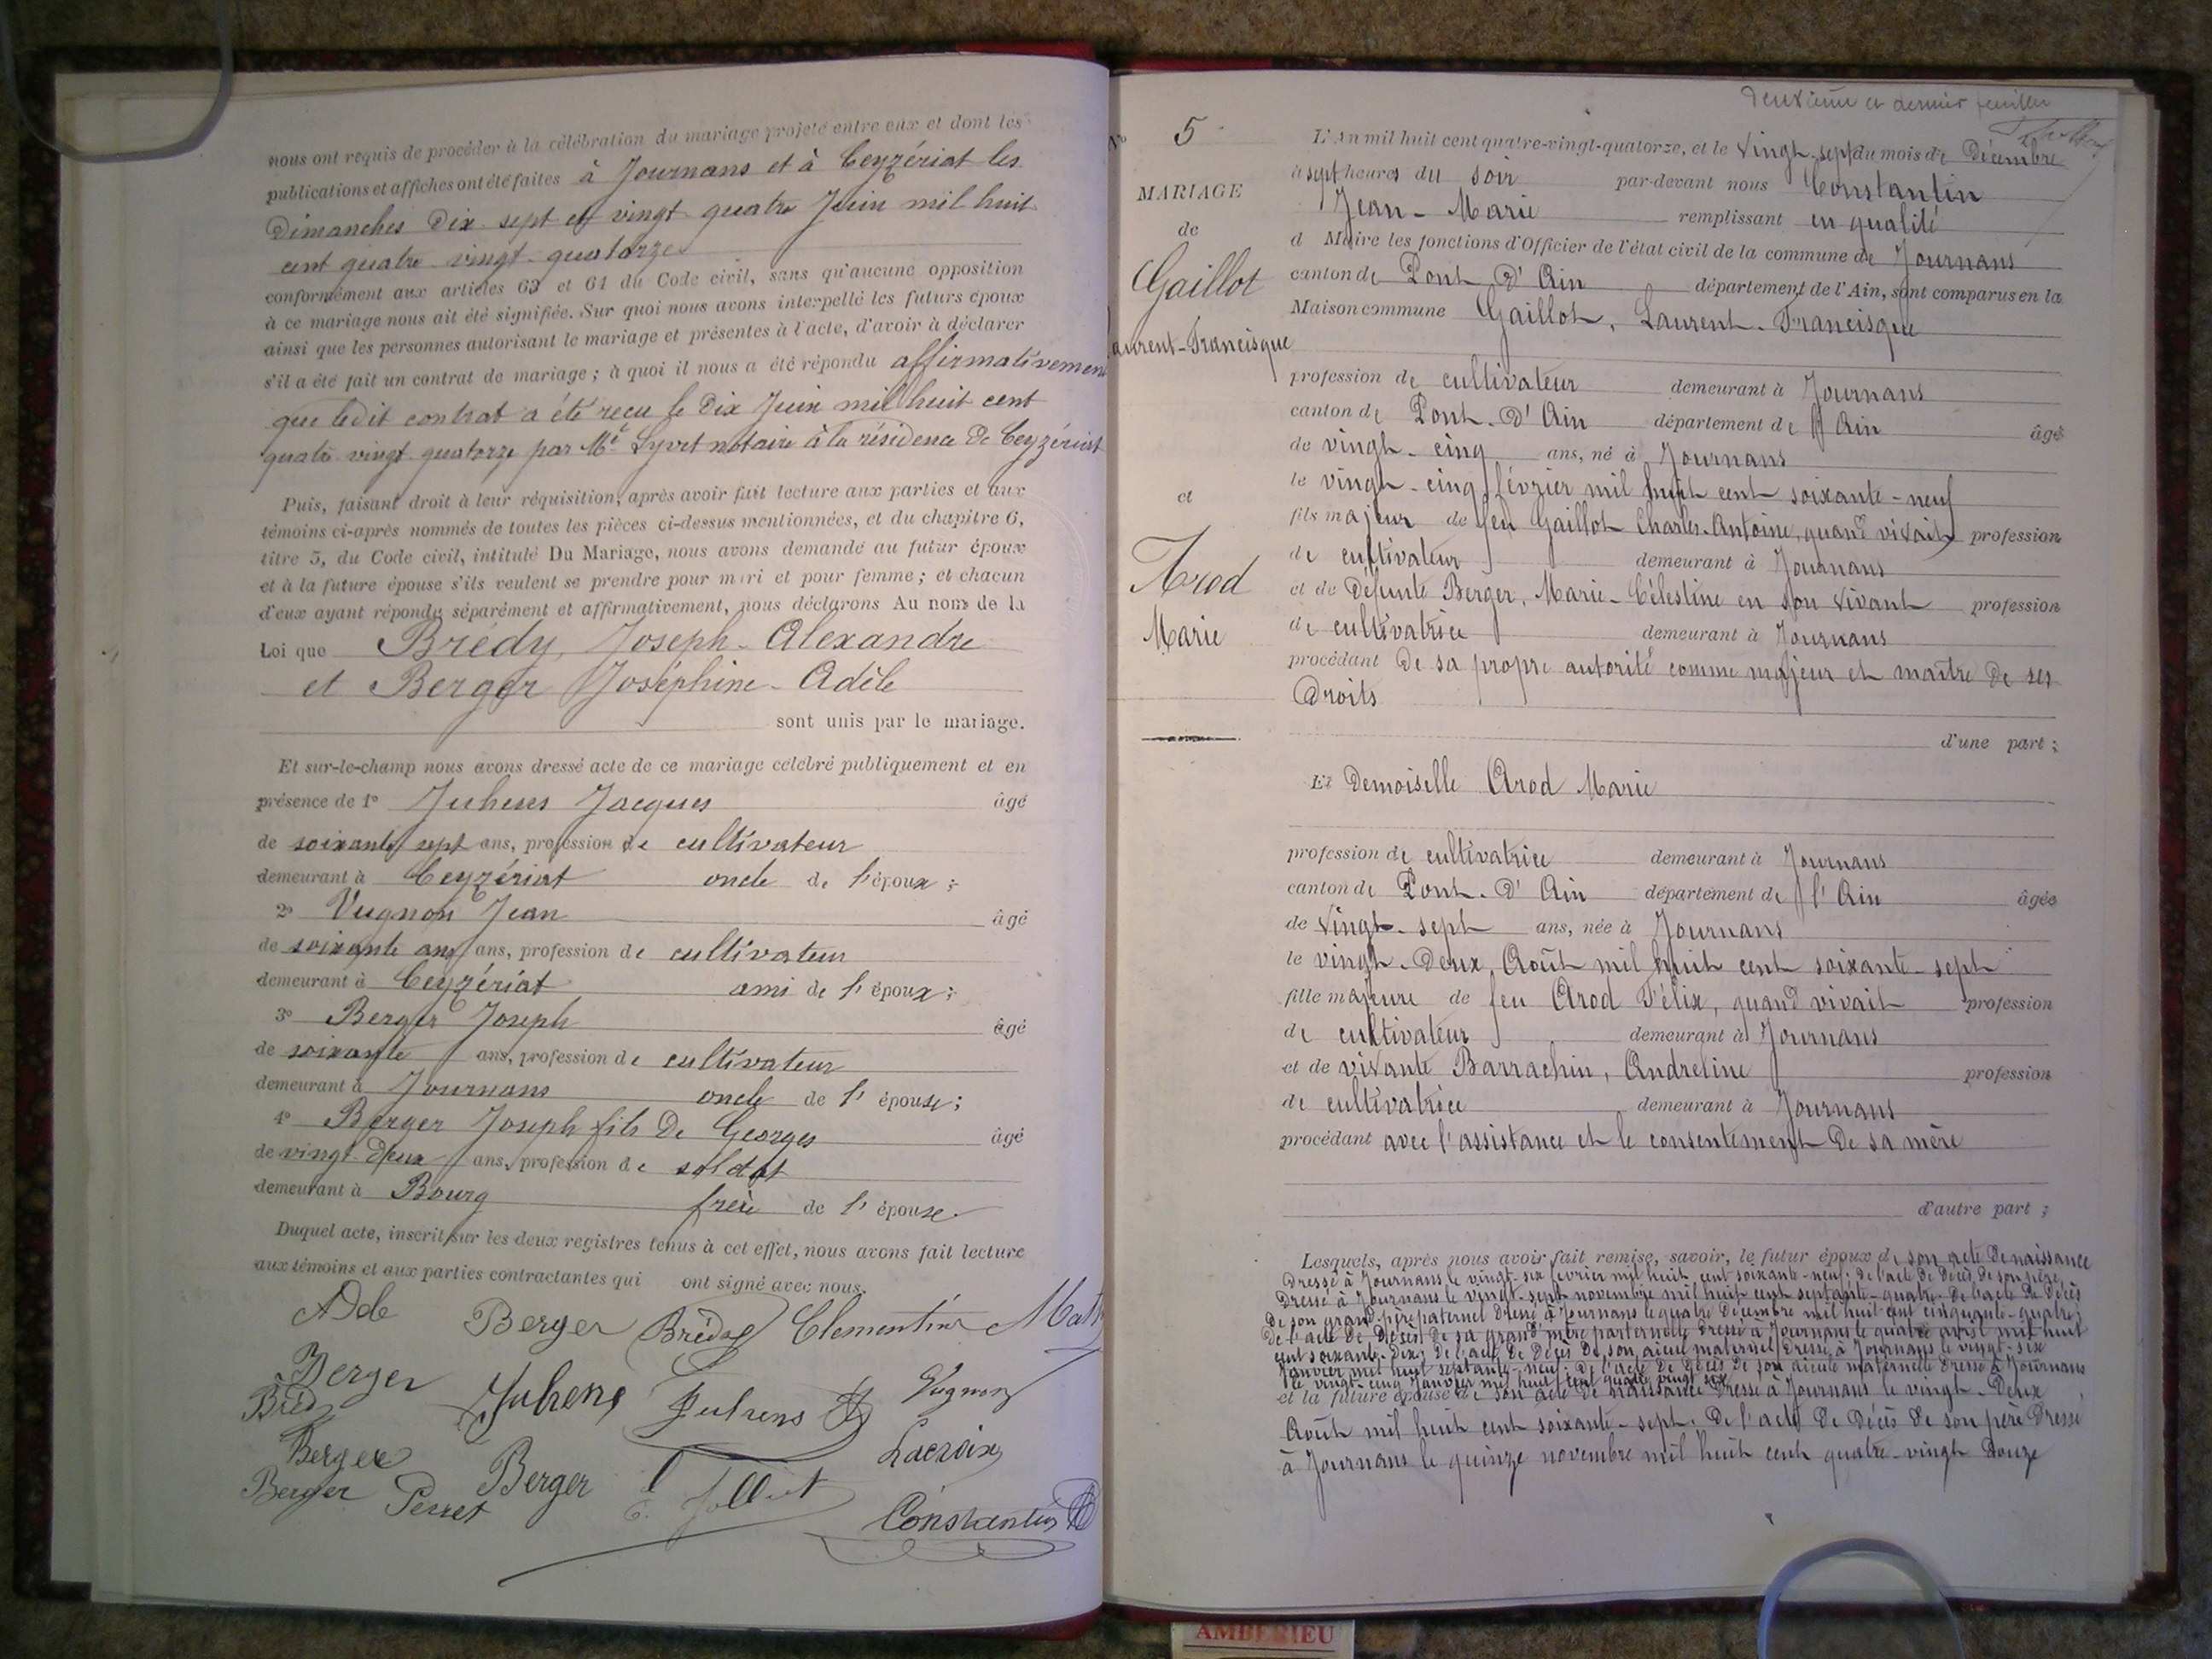 nous ont requis de procéder à la célébration du mariage projeté entre eux et dont les
publications et affiches ont été faites à Journans et à Ceyzériat les
Dimanches Dix sept et vingt quatre Juin mil huit
cent quatre vingt quatorze
conformément aux articles 63 et 64 du Code civil, sans qu'aucune opposition
à ce mariage nous ait été signifiée. Sur quoi nous avons interpellé les futurs époux
ainsi que les personnes autorisant le mariage et présentes à l'acte, d'avoir à déclarer
s'il a été fait un contrat de mariage ; à quoi il nous a été répondu affirmativement
que ledit contrat a été reçu le Dix Juin mil huit cent
quatre vingt quatorze par Me Lyvet notaire à la résidence de Ceyzériat
Puis, faisant droit à leur réquisition, après avoir fait lecture aux parties et aux
témoins ci-après nommés de toutes les pièces ci-dessus mentionnées, et du chapitre 6,
titre 5, du Code civil, intitulé Du Mariage, nous avons demandé au futur époux
et à la future épouse s'ils veulent se prendre pour mari et pour femme ; et chacun
d'eux ayant répondu séparément et affirmativement, nous déclarons Au nom de la
Loi que Brédy, Joseph-Alexandre
et Berger Joséphine-Adèle
sont unis par le mariage.
Et sur-le-champ nous avons dressé acte de ce mariage célébré publiquement et en
présence de 1° Juhens Jacques âgé
de soixante sept ans, profession de cultivateur
demeurant à Ceyzériat oncle de l'époux ;
2° Vugnon Jean âgé
de soixante ans ans, profession de cultivateur
demeurant à Ceyzériat ami de l'époux ;
3° Berger Joseph âgé
de soixante ans, profession de cultivateur
demeurant à Journans oncle de l'épouse ;
4° Berger Joseph fils De Georges âgé
de vingt deux ans, profession de soldat
demeurant à Bourg frère de l'épouse.
Duquel acte, inscrit sur les deux registres tenus à cet effet, nous avons fait lecture
aux témoins et aux parties contractantes qui ont signé avec nous.
Adèle Berger Brédy Clementine
Berger Juhens Juhens Vugnon
Bréd
Berger Berger Lacroix
Berger Perret Constantin
Deuxième et dernier feuillet
N° 5
MARIAGE
de
Gaillot
Laurent-Francisque
et
Arod
Marie
L'An mil huit cent quatre-vingt-quatorze, et le vingt-sept du mois de Décembre
à sept heures du soir par-devant nous Constantin
Jean-Marie remplissant en qualité
d Maire les fonctions d'Officier de l'état civil de la commune de Journans
canton de Pont-D'Ain département de l'Ain, sont comparus en la
Maison commune Gaillot, Laurent-Francisque
profession de cultivateur demeurant à Journans
canton de Pont-D'Ain département de l'Ain âgé
de vingt-cinq ans, né à Journans
le vingt-cinq février mil huit cent soixante-neuf
fils majeur de feu Gaillot Charles-Antoine, quand vivait profession
de cultivateur demeurant à Journans
et de Défunte Berger, Marie-Célestine en son vivant profession
de cultivatrice demeurant à Journans
procédant De sa propre autorité comme majeur et maître De ses
Droits
d'une part ;
Et Demoiselle Arod Marie
profession de cultivatrice demeurant à Journans
canton de Pont-D'Ain département de l'Ain âgée
de vingt-sept ans, née à Journans
le vingt-Deux Août mil huit cent soixante-sept
fille majeure de feu Arod Félix, quand vivait profession
de cultivateur demeurant à Journans
et de vivante Barrachin, Andreline profession
de cultivatrice demeurant à Journans
procédant avec l'assistance et le consentement De sa mère
d'autre part ;
Lesquels, après nous avoir fait remise, savoir, le futur époux de son acte De naissance
Dressé à Journans le vingt-six février mil huit cent soixante-neuf ; De l'acte De Décès De son père
Dressé à Journans le vingt-sept novembre mil huit cent septante-quatre. De l'acte De Décès
De son grand-père paternel Dressé à Journans le quatre Décembre mil huit cent cinquante-quatre ;
De l'acte De Décès De sa grand'mère paternelle Dressé à Journans le quatre avril mil huit
cent soixante-Dix ; De l'acte De Décès De son aïeul maternel Dressé à Journans le vingt-six
Janvier mil huit septante-neuf ; De l'acte De Décès De son aïeule maternelle Dressé à Journans
le vingt-cinq Janvier mil huit cent quatre vingt six
et la future épouse de son acte De naissance Dressé à Journans le vingt-Deux
Août mil huit cent soixante-sept. De l'acte De Décès De son père Dressé
à Journans le quinze novembre mil huit cent quatre-vingt Douze
AMBERIEU